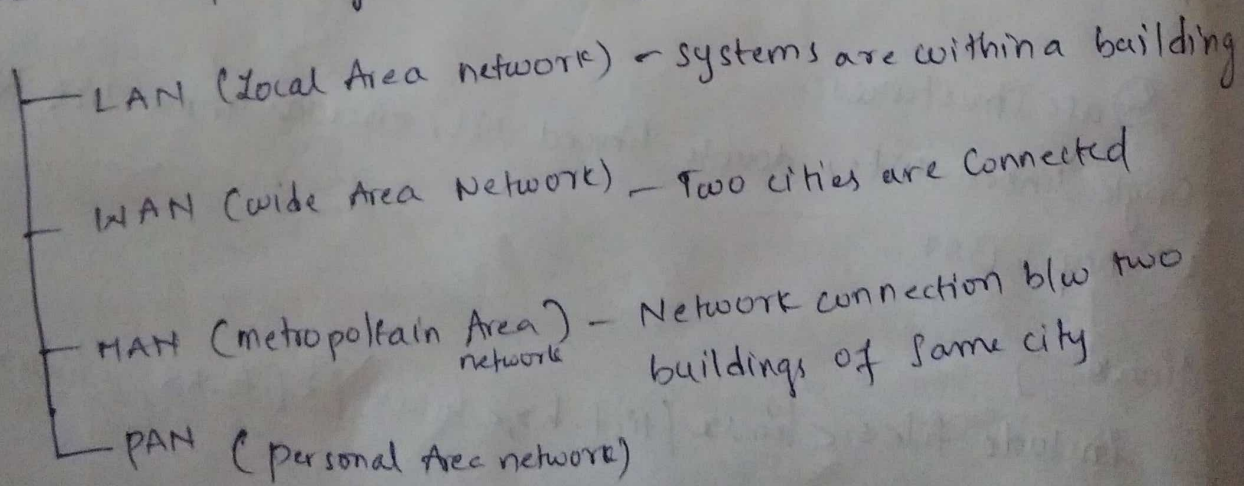 LAN (Local Area network) - systems are within a building
WAN (wide Area Network) - Two cities are Connected
MAN (metropoltain Area) - Network connection b/w two
network buildings of same city
PAN (personal Area network)